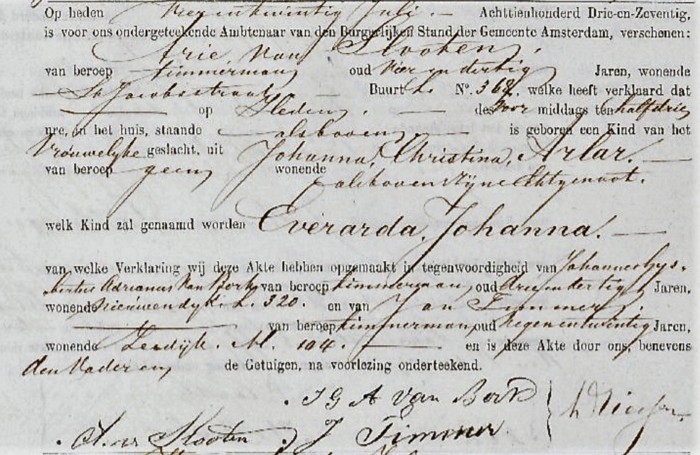 Op heden Negentwintig Juli. — Achttienhonderd Drie-en-Zeventig.
is voor ons ondergeteekende Ambtenaar van den Burgerlijken Stand der Gemeente Amsterdam, verschenen:
Arie van Slooten,
van beroep timmerman oud vier en dertig Jaren, wonende
St Jacobsstraat Buurt L. N°. 362. welke heeft verklaard dat
op Heden des voor middags ten half drie
ure, in het huis, staande alsboven, is geboren een Kind van het
Vrouwelyke geslacht, uit Johanna, Christina, Arlar.
van beroep geen, wonende alsboven zyne Echtgenoot.
welk Kind zal genaamd worden Everarda, Johanna. —
van welke Verklaring wij deze Akte hebben opgemaakt in tegenwoordigheid van Johannes Gys-
bertus Adrianus van Bork, van beroep timmerman, oud drie en dertig, Jaren,
wonende Nieuwendyk L. 320. en van Jan Timmer,
van beroep timmerman, oud negen en twintig Jaren,
wonende Zeedijk. M. 104. — en is deze Akte door ons, benevens
den Vader en, de Getuigen, na voorlezing onderteekend.
J G A van Bork
A. van Slooten J Timmer.